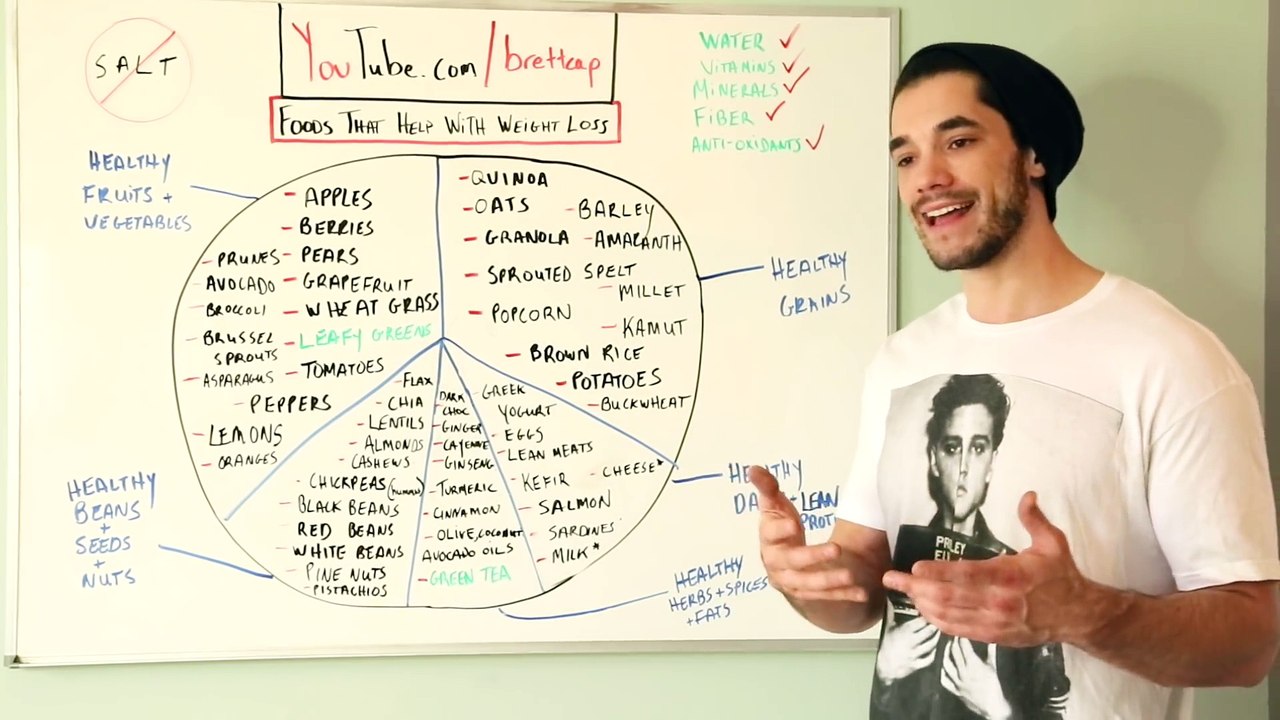 SALT
YouTube.com/brettcap
FOODS THAT HELP WITH WEIGHT LOSS
WATER ✓
VITAMINS ✓
MINERALS ✓
FIBER ✓
ANTI-OXIDANTS ✓
HEALTHY
FRUITS +
VEGETABLES
- APPLES
- BERRIES
- PRUNES - PEARS
- AVOCADO - GRAPEFRUIT
- BROCCOLI - WHEAT GRASS
- BRUSSEL - LEAFY GREENS
SPROUTS
- ASPARAGUS - TOMATOES
- PEPPERS
- LEMONS
- ORANGES
- QUINOA
- OATS - BARLEY
- GRANOLA - AMARANTH
- SPROUTED SPELT
- MILLET
- POPCORN
- KAMUT
- BROWN RICE
- POTATOES
- BUCKWHEAT
HEALTHY
GRAINS
HEALTHY
BEANS
+
SEEDS
+
NUTS
- FLAX
- CHIA
- LENTILS
- ALMONDS
- CASHEWS
- CHICKPEAS
- BLACK BEANS
- RED BEANS
- WHITE BEANS
- PINE NUTS
- PISTACHIOS
- DARK
- CHOC
- GINGER
- CAYENNE
- GINSENG
- TURMERIC
- CINNAMON
- OLIVE, COCONUT
AVOCADO OILS
- GREEN TEA
- GREEK
YOGURT
- EGGS
- LEAN MEATS
- KEFIR - CHEESE*
- SALMON
- SARDINES
- MILK*
HEALTHY
DA + LEAN
PROT
HEALTHY
HERBS + SPICES
+ FATS
PRLEY